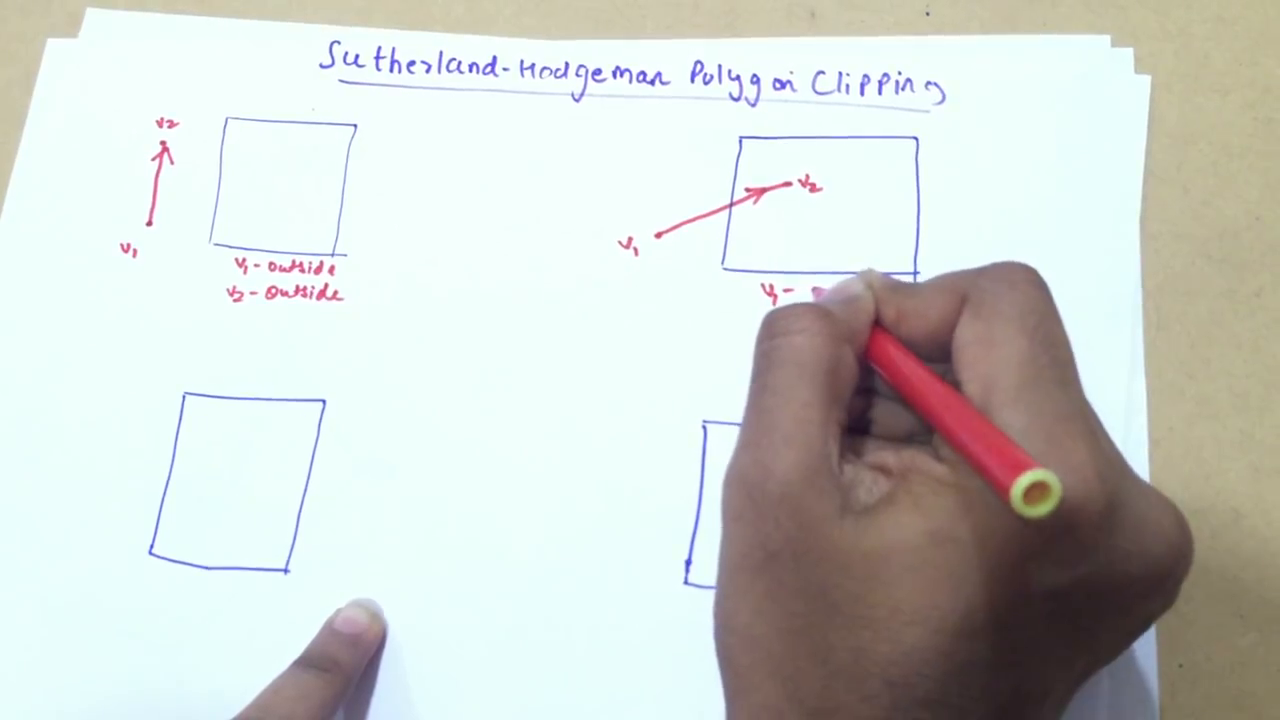 Sutherland-Hodgeman Polygon Clipping
v2
v1
v1 - outside
v2 - outside
v2
v1
v1 -